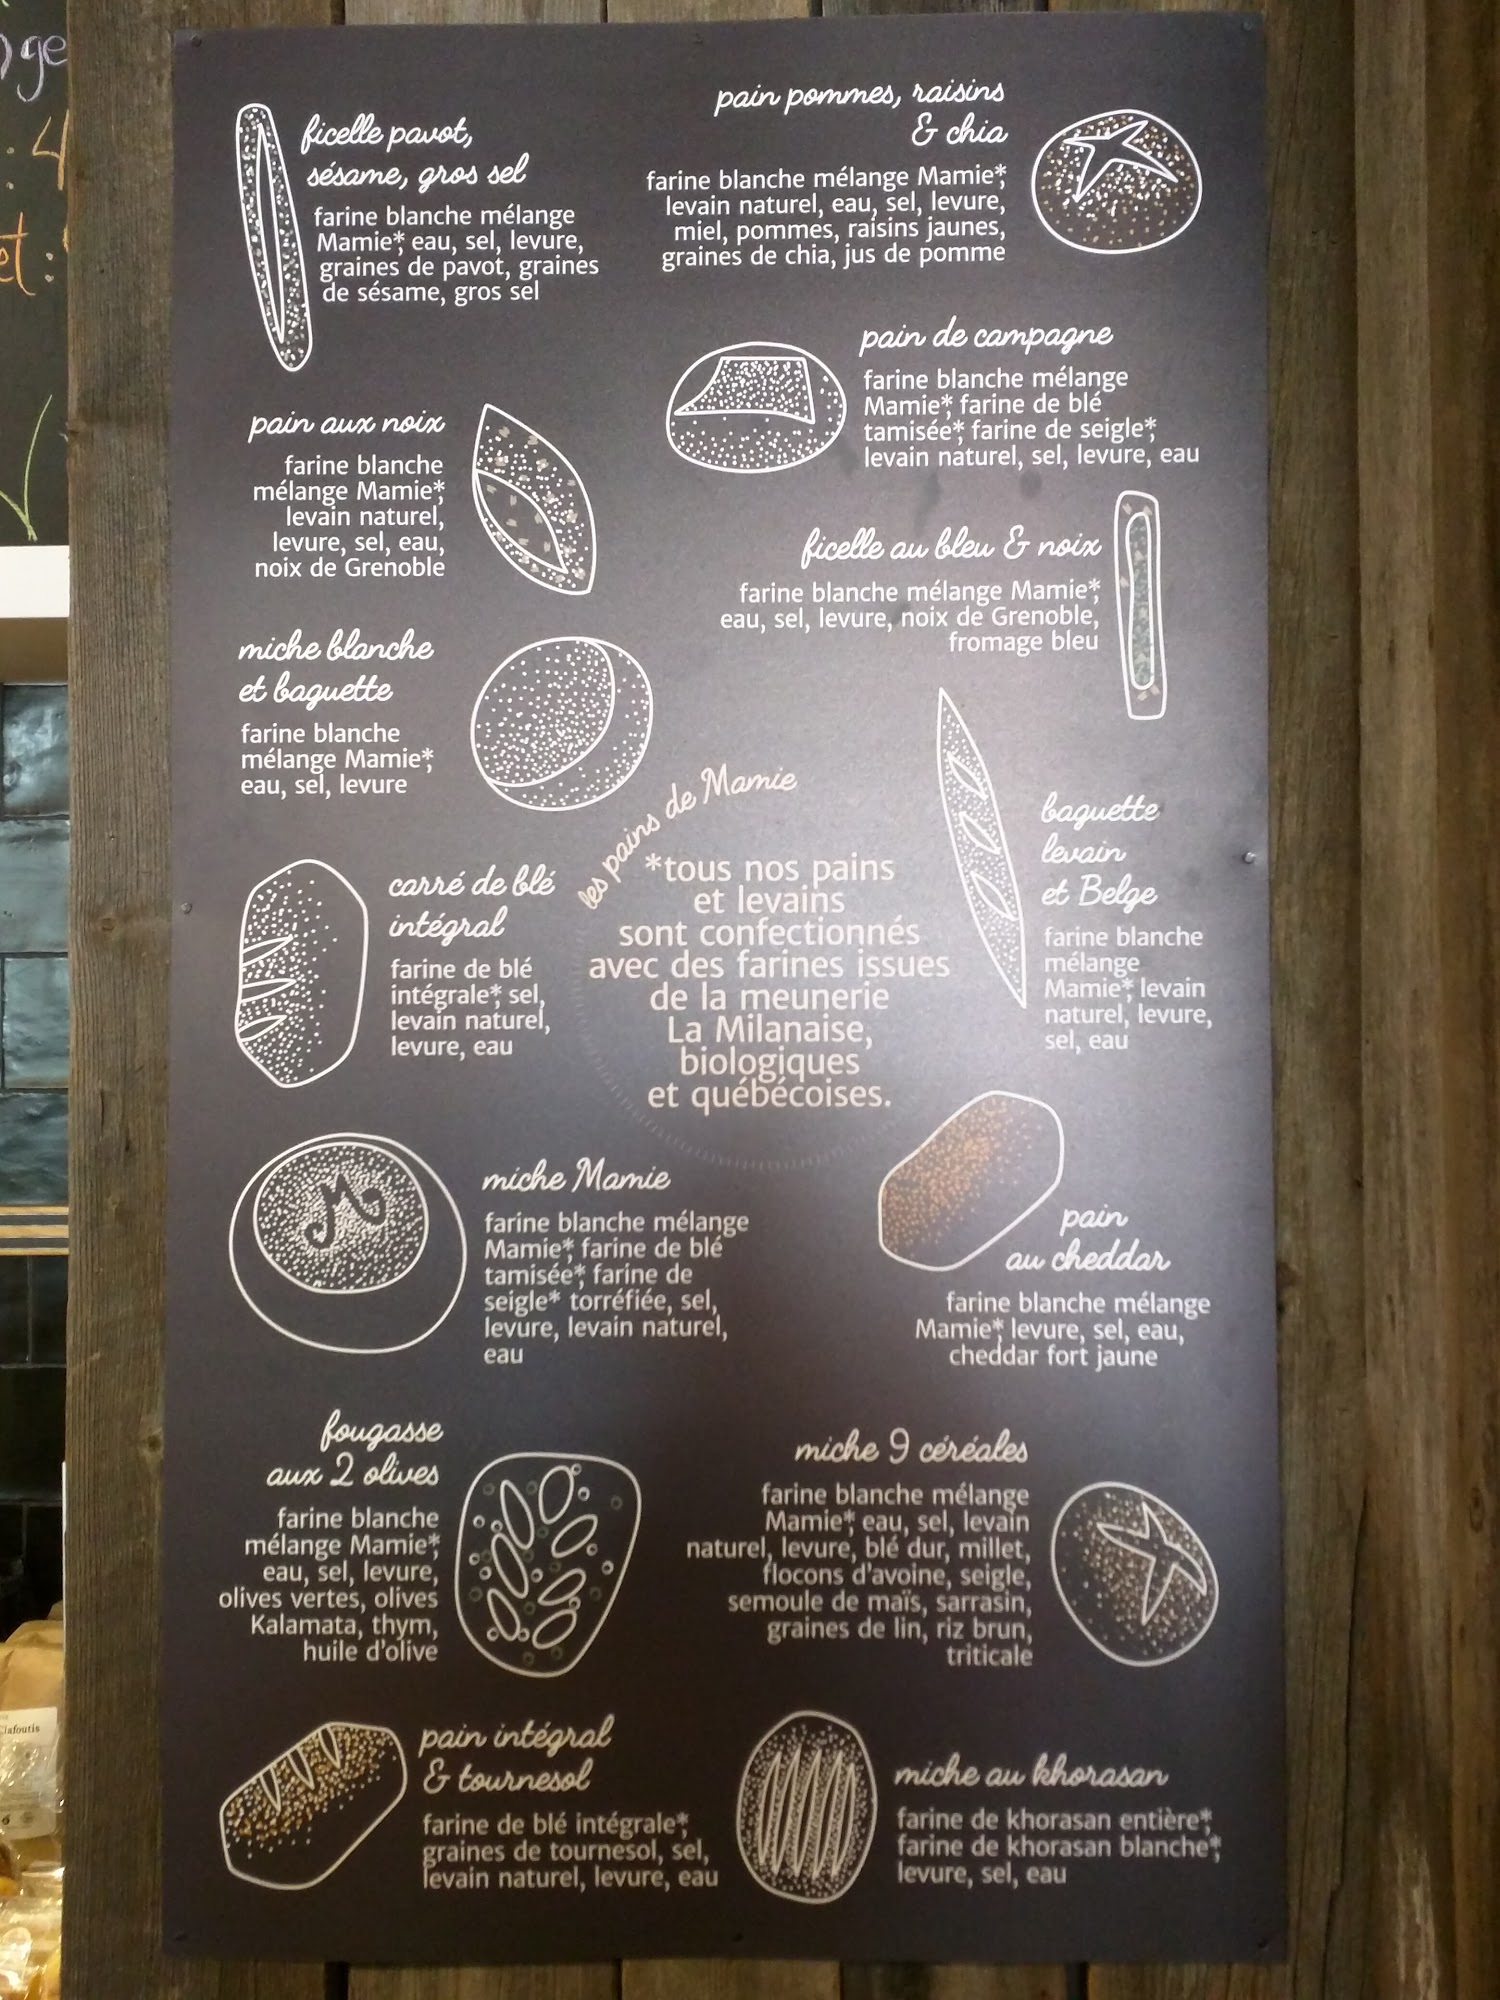 ficelle pavot,
sésame, gros sel
farine blanche mélange
Mamie*, eau, sel, levure,
graines de pavot, graines
de sésame, gros sel
pain pommes, raisins
& chia
farine blanche mélange Mamie*,
levain naturel, eau, sel, levure,
miel, pommes, raisins jaunes,
graines de chia, jus de pomme
pain de campagne
farine blanche mélange
Mamie*, farine de blé
tamisée*, farine de seigle*,
levain naturel, sel, levure, eau
pain aux noix
farine blanche
mélange Mamie*,
levain naturel,
levure, sel, eau,
noix de Grenoble
ficelle au bleu & noix
farine blanche mélange Mamie*,
eau, sel, levure, noix de Grenoble,
fromage bleu
miche blanche
et baguette
farine blanche
mélange Mamie*,
eau, sel, levure
les pains de Mamie
*tous nos pains
et levains
sont confectionnés
avec des farines issues
de la meunerie
La Milanaise,
biologiques
et québécoises.
baguette
levain
et Belge
farine blanche
mélange
Mamie*, levain
naturel, levure,
sel, eau
carré de blé
intégral
farine de blé
intégrale*, sel,
levain naturel,
levure, eau
miche Mamie
farine blanche mélange
Mamie*, farine de blé
tamisée*, farine de
seigle* torréfiée, sel,
levure, levain naturel,
eau
M
pain
au cheddar
farine blanche mélange
Mamie*, levure, sel, eau,
cheddar fort jaune
fougasse
aux 2 olives
farine blanche
mélange Mamie*,
eau, sel, levure,
olives vertes, olives
Kalamata, thym,
huile d'olive
miche 9 céréales
farine blanche mélange
Mamie*, eau, sel, levain
naturel, levure, blé dur, millet,
flocons d'avoine, seigle,
semoule de maïs, sarrasin,
graines de lin, riz brun,
triticale
pain intégral
& tournesol
farine de blé intégrale*,
graines de tournesol, sel,
levain naturel, levure, eau
miche au khorasan
farine de khorasan entière*,
farine de khorasan blanche*,
levure, sel, eau
Clafoutis